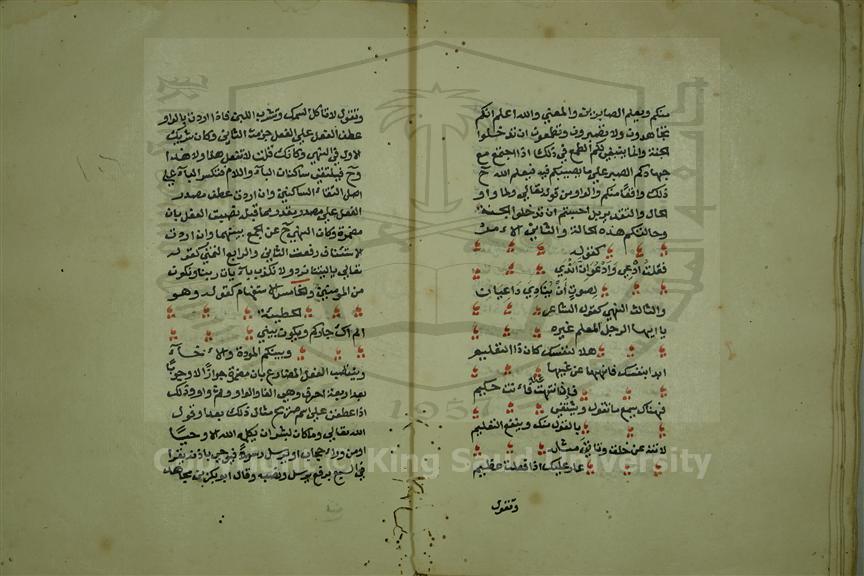 منكم ويعلم الصابرين والمعنى والله اعلم انكم
تجاهدون ولا تصبرون وتطمعون ان تدخلوا
الجنة وانما ينبغي لكم الطمع في ذلك اذا اجتمع مع
جهادكم الصبر على ما يصيبكم فيه فيعلم الله ح
ذلك واقعا منكم والواو من قوله تعالى ولما واو
الحال والتقدير بل احسبتم ان تدخلوا الجنة
وحالتكم هذه الحالة والثاني الامر
كقوله
فقلت ادعي وادعو ان اندي
لصوت ان ينادي داعيان
والثالث النهي كقول الشاعر
يا ايها الرجل المعلم غيره
هلا لنفسك كان ذا التعليم
ابدا بنفسك فانهها عن غيها
فاذا انتهت عنه فانت حكيم
فهناك يسمع ما تقول ويشتفي
بالقول منك وينفع التعليم
لا تنه عن خلق وتاتي مثله
عار عليك اذا فعلت عظيم
وتقول
وتقول لا تاكل السمك وتشرب اللبن فاذا اردت بالواو
عطف الفعل على الفعل جزمت الثاني وكان شريك
الاول في النهي وكانك قلت لا تفعل هذا ولا هذا
وح فيلتقي ساكنان الباء واللام فتكسر الباء على
اصل التقاء الساكنين وان اردت عطف مصدر
الفعل على مصدر يقدر مما قبل نصبت الفعل بان
مضمرة وكان النهي ح عن الجمع بينهما وان اردت
الاستئناف رفعت الثاني والرابع التمني كقوله
تعالى يا ليتنا نرد ولا نكذب بايات ربنا ونكون
من المؤمنين والخامس الاستفهام كقوله وهو
الحطيئة
الم اك جاركم ويكون بيني
وبينكم المودة والاخاء
وينصب الفعل المضارع بان مضمرة جوازا لا وجوبا
بعد اربعة احرف وهي الفا والواو وثم واو وذلك
اذا عطفن على اسم صريح مثال ذلك بعد او قول
الله تعالى وما كان لبشر ان يكلمه الله الا وحيا
او من وراء حجاب او يرسل رسولا فيوحي باذنه
برفع يرسل ونصبه وقال ابو بكر بن مجاهد
Copyright © King Saud University
1957